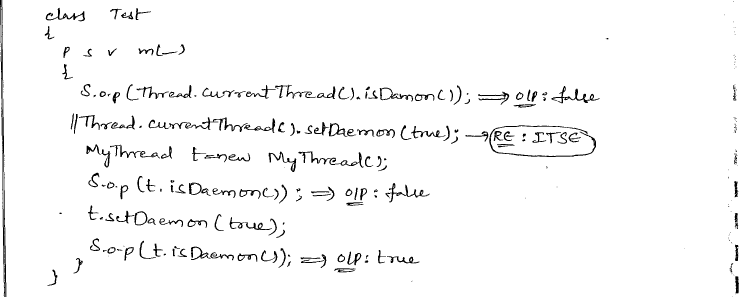 class Test
{
P S V m(—)
{
S.o.p (Thread.currentThread().isDamon()); ⟹ o/p : false
|| Thread.currentThread().setDaemon (true); → RE : ITSE
MyThread t=new MyThread();
S.o.p (t.isDaemon()) ; ⟹ o/p : false
t.setDaemon (true);
S.o.p (t.isDaemon()); ⟹ o/p : true
}
}